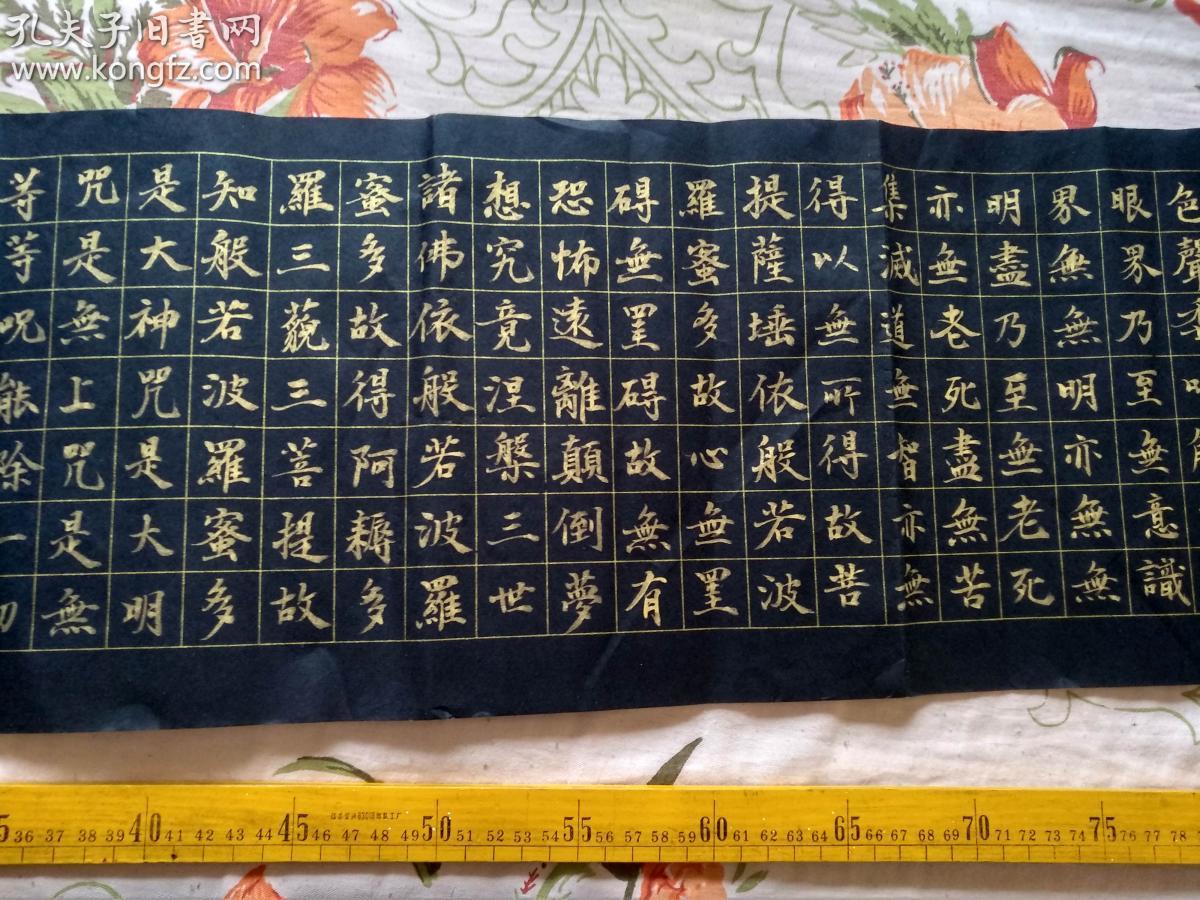 孔夫子旧書网
www.kongfz.com
色聲
眼界乃至無意識
界無無明亦無無
明盡乃至無老死
亦無老死盡無苦
集滅道無智亦無
得以無所得故菩
提薩埵依般若波
羅蜜多故心無罣
碍無罣碍故無有
恐怖遠離顛倒夢
想究竟涅槃三世
諸佛依般若波羅
蜜多故得阿耨多
羅三藐三菩提故
知般若波羅蜜多
是大神咒是大明
咒是無上咒是無
等等呪能除一切
5 36 37 38 39 40 41 42 43 44 45 46 47 48 49 50 51 52 53 54 55 56 57 58 59 60 61 62 63 64 65 66 67 68 69 70 71 72 73 74 75 76 77 78